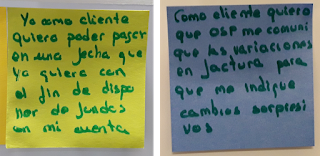 Yo como cliente
quiero poder pagar
en una fecha que
yo quiera con
el fin de dispo
ner de fondos
en mi cuenta
Como cliente quiero
que OSP me comuni
que las variaciones
en factura para
que me indique
cambios sorpresi
vos